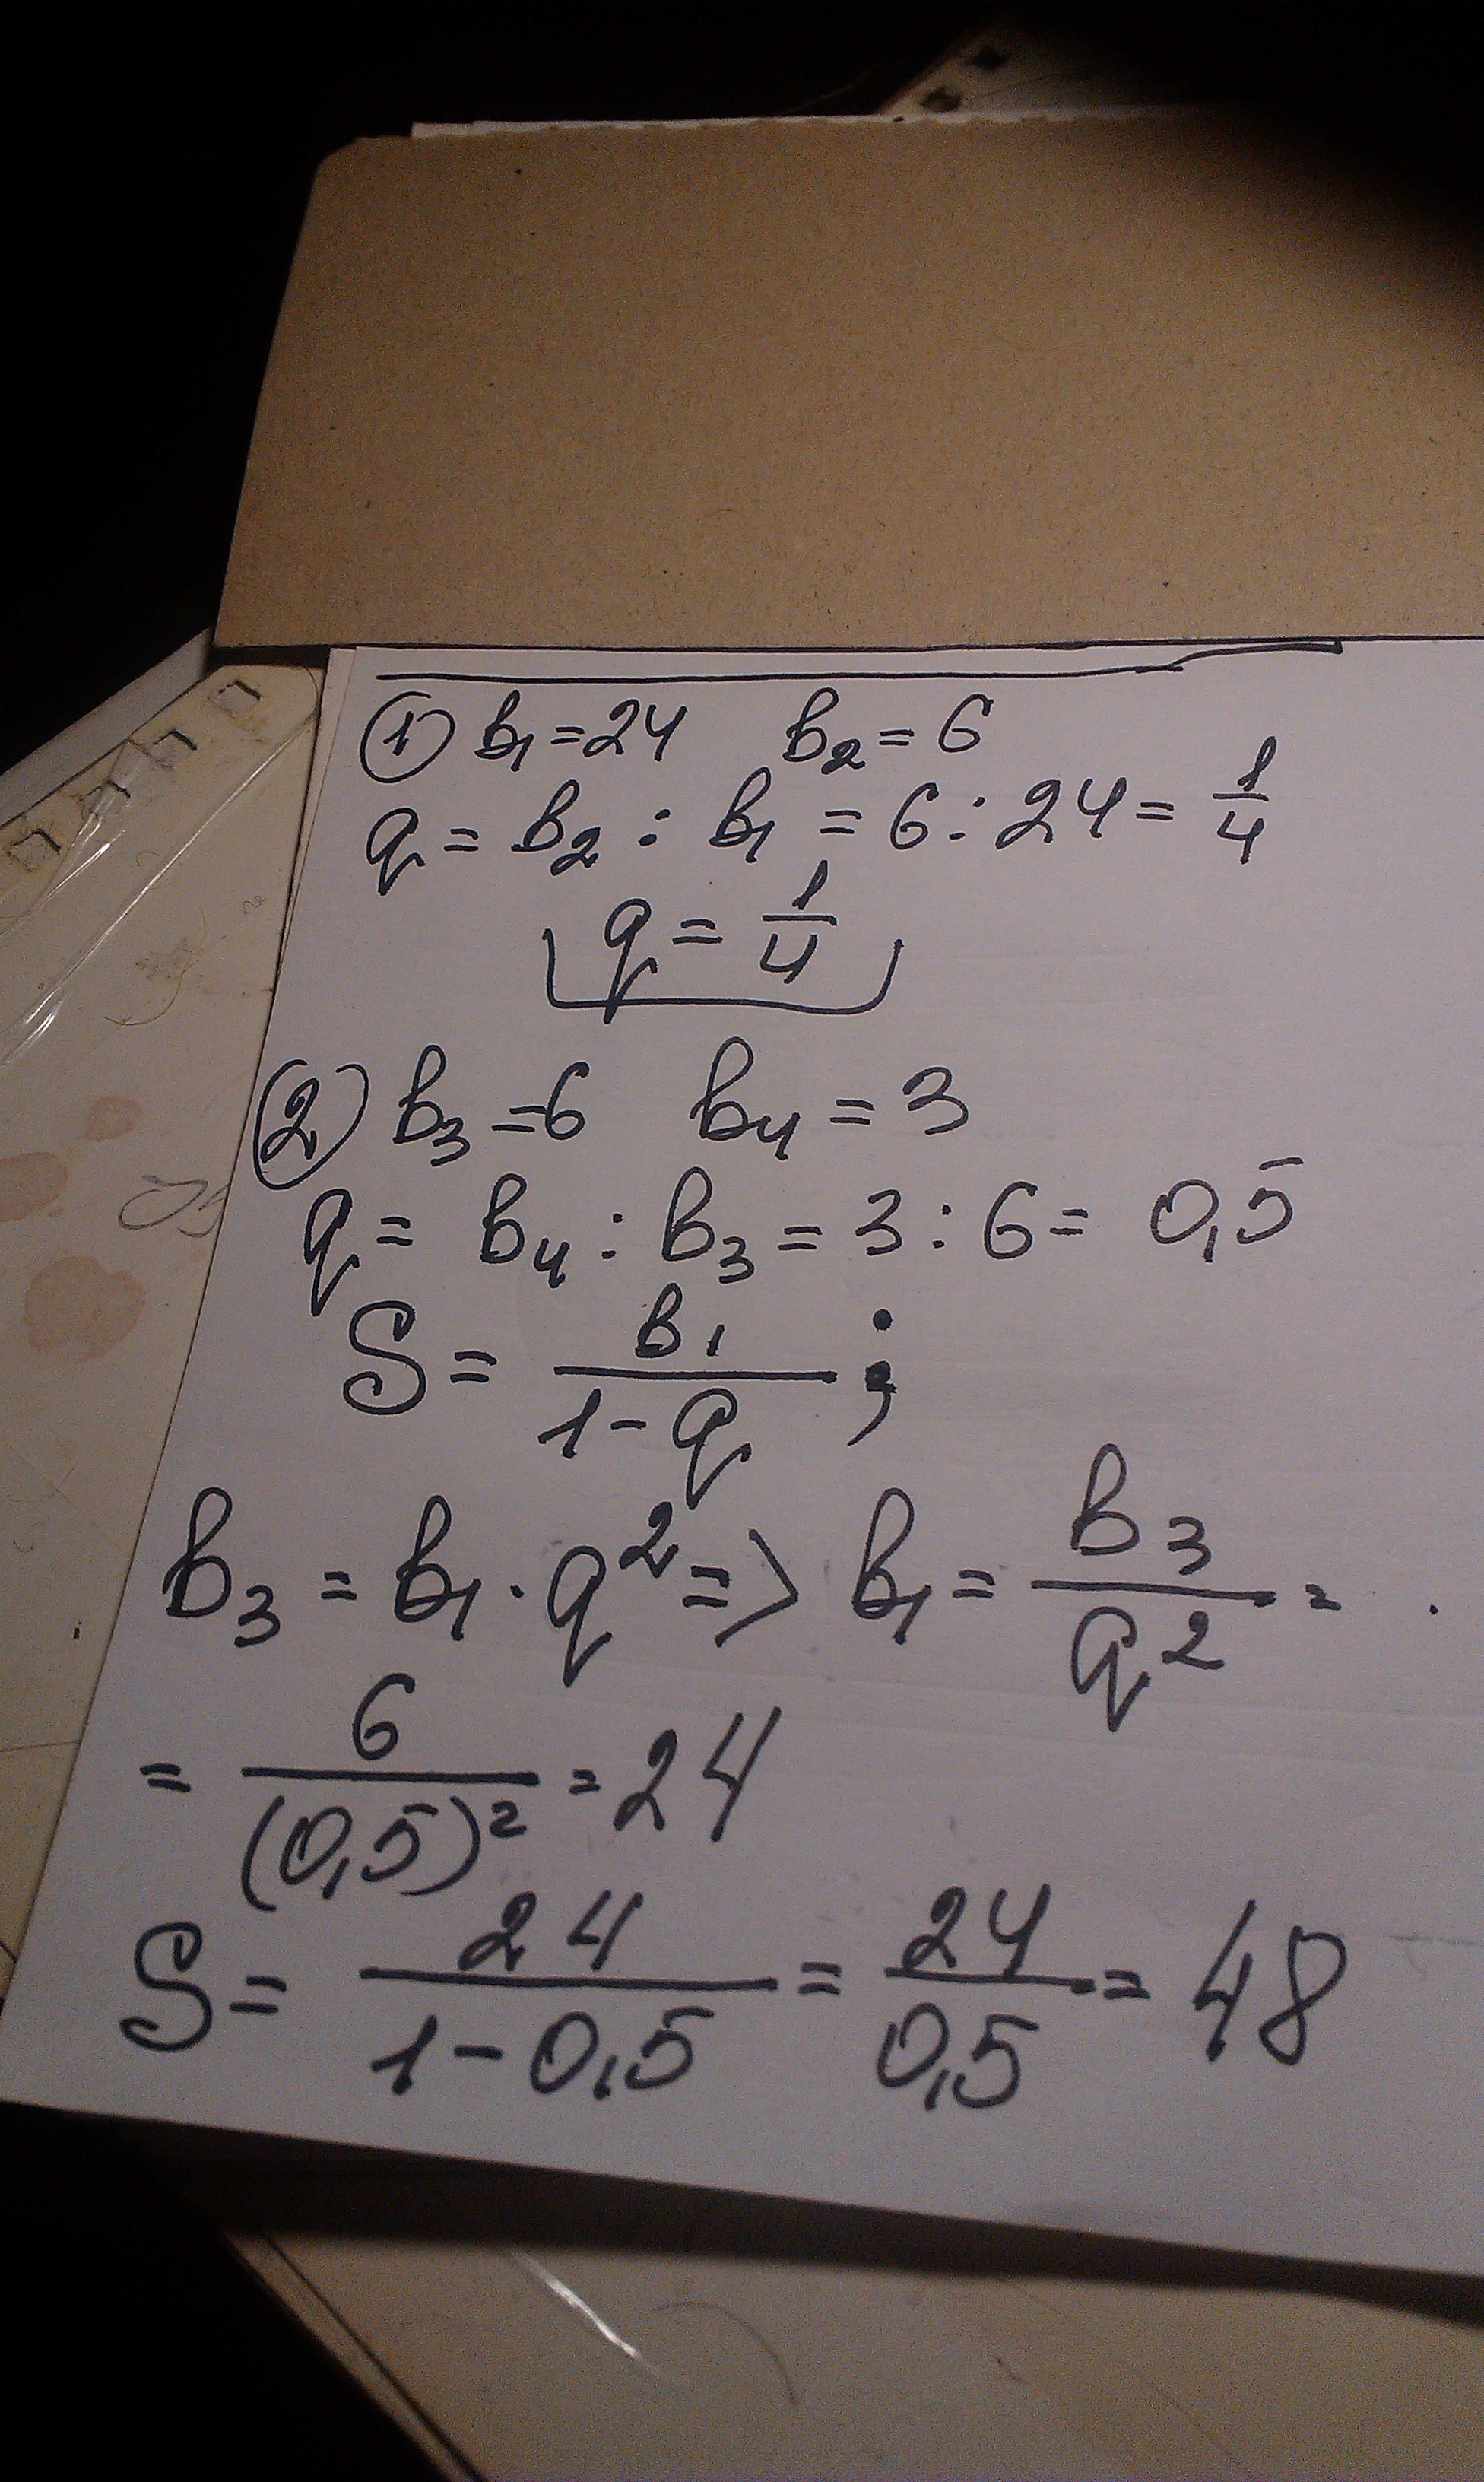 ① b₁=24 b₂=6
q = b₂ : b₁ = 6 : 24 = 1/4
q = 1/4
② b₃=6 b₄=3
q = b₄ : b₃ = 3 : 6 = 0,5
S = b₁/(1-q) ;
b₃ = b₁ · q² => b₁ = b₃/q² =
= 6/(0,5)² = 24
S = 24/(1-0,5) = 24/0,5 = 48